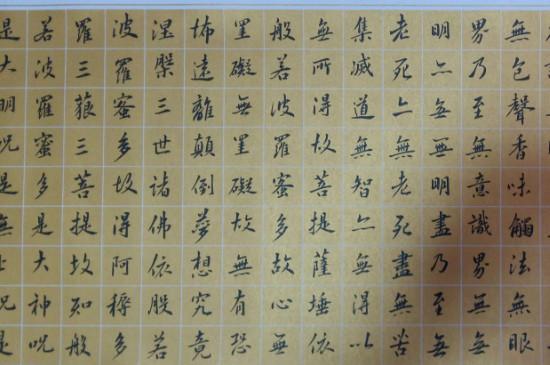 無色聲香味觸法無眼
界乃至無意識界無無
明亦無無明盡乃至無
老死亦無老死盡無苦
集滅道無智亦無得以
無所得故菩提薩埵依
般若波羅蜜多故心無
罣礙無罣礙故無有恐
怖遠離顛倒夢想究竟
涅槃三世諸佛依般若
波羅蜜多故得阿耨多
羅三藐三菩提故知般
若波羅蜜多是大神咒
是大明咒是無上咒是